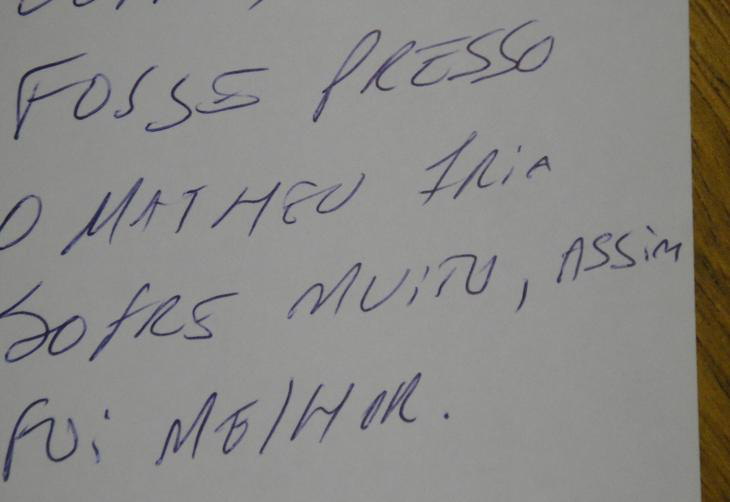 FOSSE PRESSO
O MATHEU IRIA
SOFRE MUITO, ASSIM
FOI MELHOR.